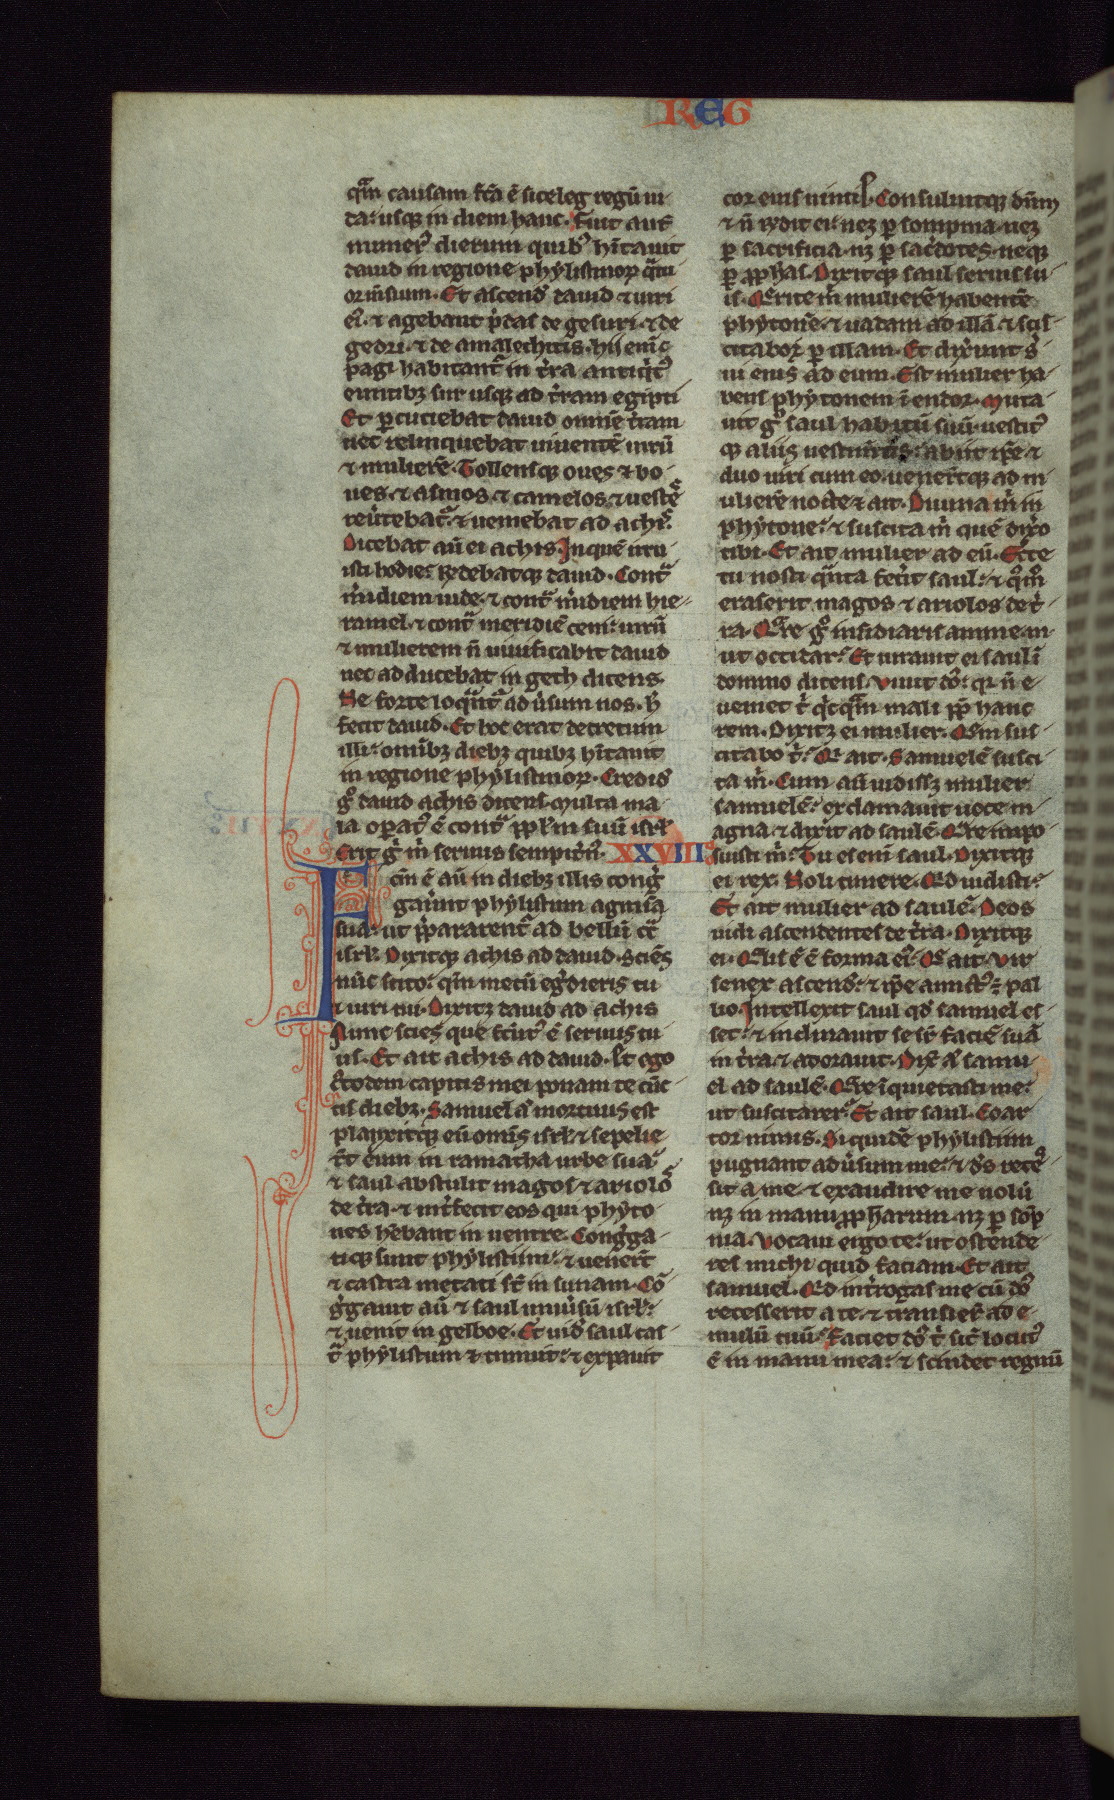 REG
qm̄ causam fc̄a ē siceleg regū iu
da: usq; in diem hanc. Fuit aut̄
numerꝰ dierum quibꝰ hītauit
dauid in regione phylistinoꝝ q̄tu
or m̄sium. Et ascend̄ dauid ⁊ uiri
eiꝰ. ⁊ agebant p̄das de gesuri. ⁊ de
gedri. ⁊ de amalechitis. hii enī
pagi habitant̄ in t̄ra antiq̇tꝰ
euntibꝫ sur usq; ad t̄ram egipti
Et ꝑcutiebat dauid omnē t̄ram
nec relinquebat uiuentē uirū
⁊ mulierē. Tollensq; oues ⁊ bo-
ues. ⁊ asinos ⁊ camelos. ⁊ uestes
reu̅tebat̄. ⁊ ueniebat ad achis.
Dicebat aū ei achis. In quē irru
isti hodie: r̄ndebatq; dauid. Cont̄
m̄idiem iude. ⁊ cont̄ m̄idiem hie-
ramel. ⁊ cont̄ meridiē ceni: uirū
⁊ mulierem n̄ uiuificabit dauid
nec adducebat in geth dicens.
Ne forte loquāt̄ ad u̅sum nos. h̄
fecit dauid. Et hoc erat decretum
illi: omībꝫ diebꝫ quibꝫ hītauit
in regione phylistinoꝝ. Credid̄
g̊ dauid achis dicens. Multa ma
la oꝑatꝰ ē cont̄ ppl̄m suū isrl̄
Erit g̊ m̄ seruus sempit̄nꝰ. XXVIII
Fcm̄ ē aū in diebꝫ illis cong̊
gau̅nt phylistiim agmīa
sua: ut p̄pararent̄ ad bellū ct̄
isrl̄. Dixitq; achis ad dauid. Sciēs
nūc scito: qm̄ mecū eg̊dieris tu
⁊ uiri tui. Dixitꝫ dauid ad achis
Nunc scies que fc̄urꝰ ē seruus tu
us. Et ait achis ad dauid. Et ego
c̄todem capitis mei ponam te cūc
tis diebꝫ. Samuel aū mortuus est
planxitq; eū omīs isrl̄. ⁊ sepelie
r̄t eum in ramatha urbe sua.
⁊ saul abstulit magos ⁊ ariolos
de t̄ra. ⁊ int̄fecit eos qui phyto-
nes hēbant in uentre. Cong̊ga-
tiq; sunt phylistiim. ⁊ uener̄t
⁊ castra metati st̄ in sunam. Cō
g̊gauit aū ⁊ saul uniu̅sū isrl̄:
⁊ uenit in gelboe. Et uid̄ saul cas
t̄ phylistiim ⁊ timuit: ⁊ expauit
cor eius nimis. Consuluitq; dn̄m
⁊ n̄ r̄ndit ei: neqꝫ ꝑ sompnia. neqꝫ
ꝑ sacrificia. nꝫ ꝑ sac̄dotes. neque
ꝑ ꝓphās. Dixitq; saul seruis su-
is. Q̄rite m̄ mulierē habentē
phytonē. ⁊ uadam ad illā ⁊ scis-
citaboꝝ ꝑ illam. Et dixr̄unt s̄
ui eius ad eum. Est mulier ha-
bens phytonem ī endor. Muta-
uit g̊ saul habitū suū. uestitꝰ
q; aliis uestim̄tis: abiit ip̄e ⁊
duo uiri cum eo. uener̄tq; ad m
ulierē nocte ⁊ ait. Diuina m̄ in
phytone: ⁊ suscita m̄ quē dix̄o
tibi. Et ait mulier ad eū. Ecce
tu nosti q̄nta fec̄it saul: ⁊ q̊m̊
eraserit magos ⁊ ariolos de t̄-
ra. Q̄re g̊ insidiaris anime m
ut occidar: Et iurauit ei saul ī
domino dicens. Viuit dꝰ: qꝛ n̄ e
ueniet t̄ q̇cq̄m mali ꝓp̄ hanc
rem. Dixitꝫ ei mulier. Quē sus
citabo t̄: Qui ait. Samuelē susci
ta m̄. Cum aū uidissꝫ mulier
samuelē: exclamauit uoce m-
agna. ⁊ dixit ad saulē. Q̄re impo
suisti m̄: Tu es enī saul. Dixitq;
ei rex. Noli timere. Qd̄ uidisti:
Et ait mulier ad saulē. Deos
uidi ascendentes de t̄ra. Dixitq;
ei. Qualis ē forma eiꝰ. Qui ait. Vir
senex ascend̄: ⁊ ip̄e amictꝰ ē pal
lio. Intellexit saul qd̄ samuel es
set: ⁊ inclinauit se sr̄ faciē suā
in t̄ra. ⁊ adorauit. Dix̄ aū samu
el ad saulē. Q̄re īquietasti me:
ut suscitarer: Et ait saul. Coar
tor nimis. Siquidē phylistiim
pugnant adu̅sum me: ⁊ ds̄ reces
sit a me ⁊ exaudire me nolū
nꝫ in manu ꝓphārum. nꝫ ꝑ sōp
nia. Vocaui ergo te: ut ostende
res michi quid faciam. Et ait
samuel. Qd̄ int̄rogas me cū dꝰ
recesserit a te. ⁊ transier̄ ad e-
mulū tuū: Faciet dꝰ t̄ sic̄ locutꝰ
ē in manu mea: ⁊ scindet regnū